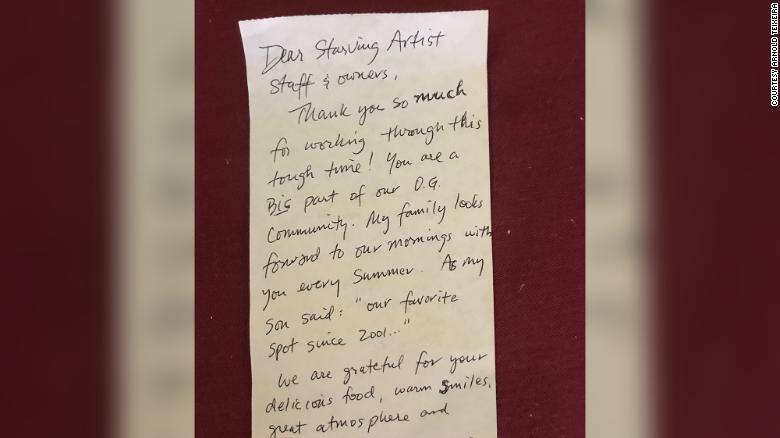 Dear Starving Artist
Staff & owners,
Thank you so much
for working through this
tough time! You are a
BIG part of our O.G.
Community. My family looks
forward to our mornings with
you every Summer. As my
Son said: "our favorite
spot since 2001..."
We are grateful for your
delicious food, warm smiles,
great atmosphere and
COURTESY ARNOLD TEIXEIRA